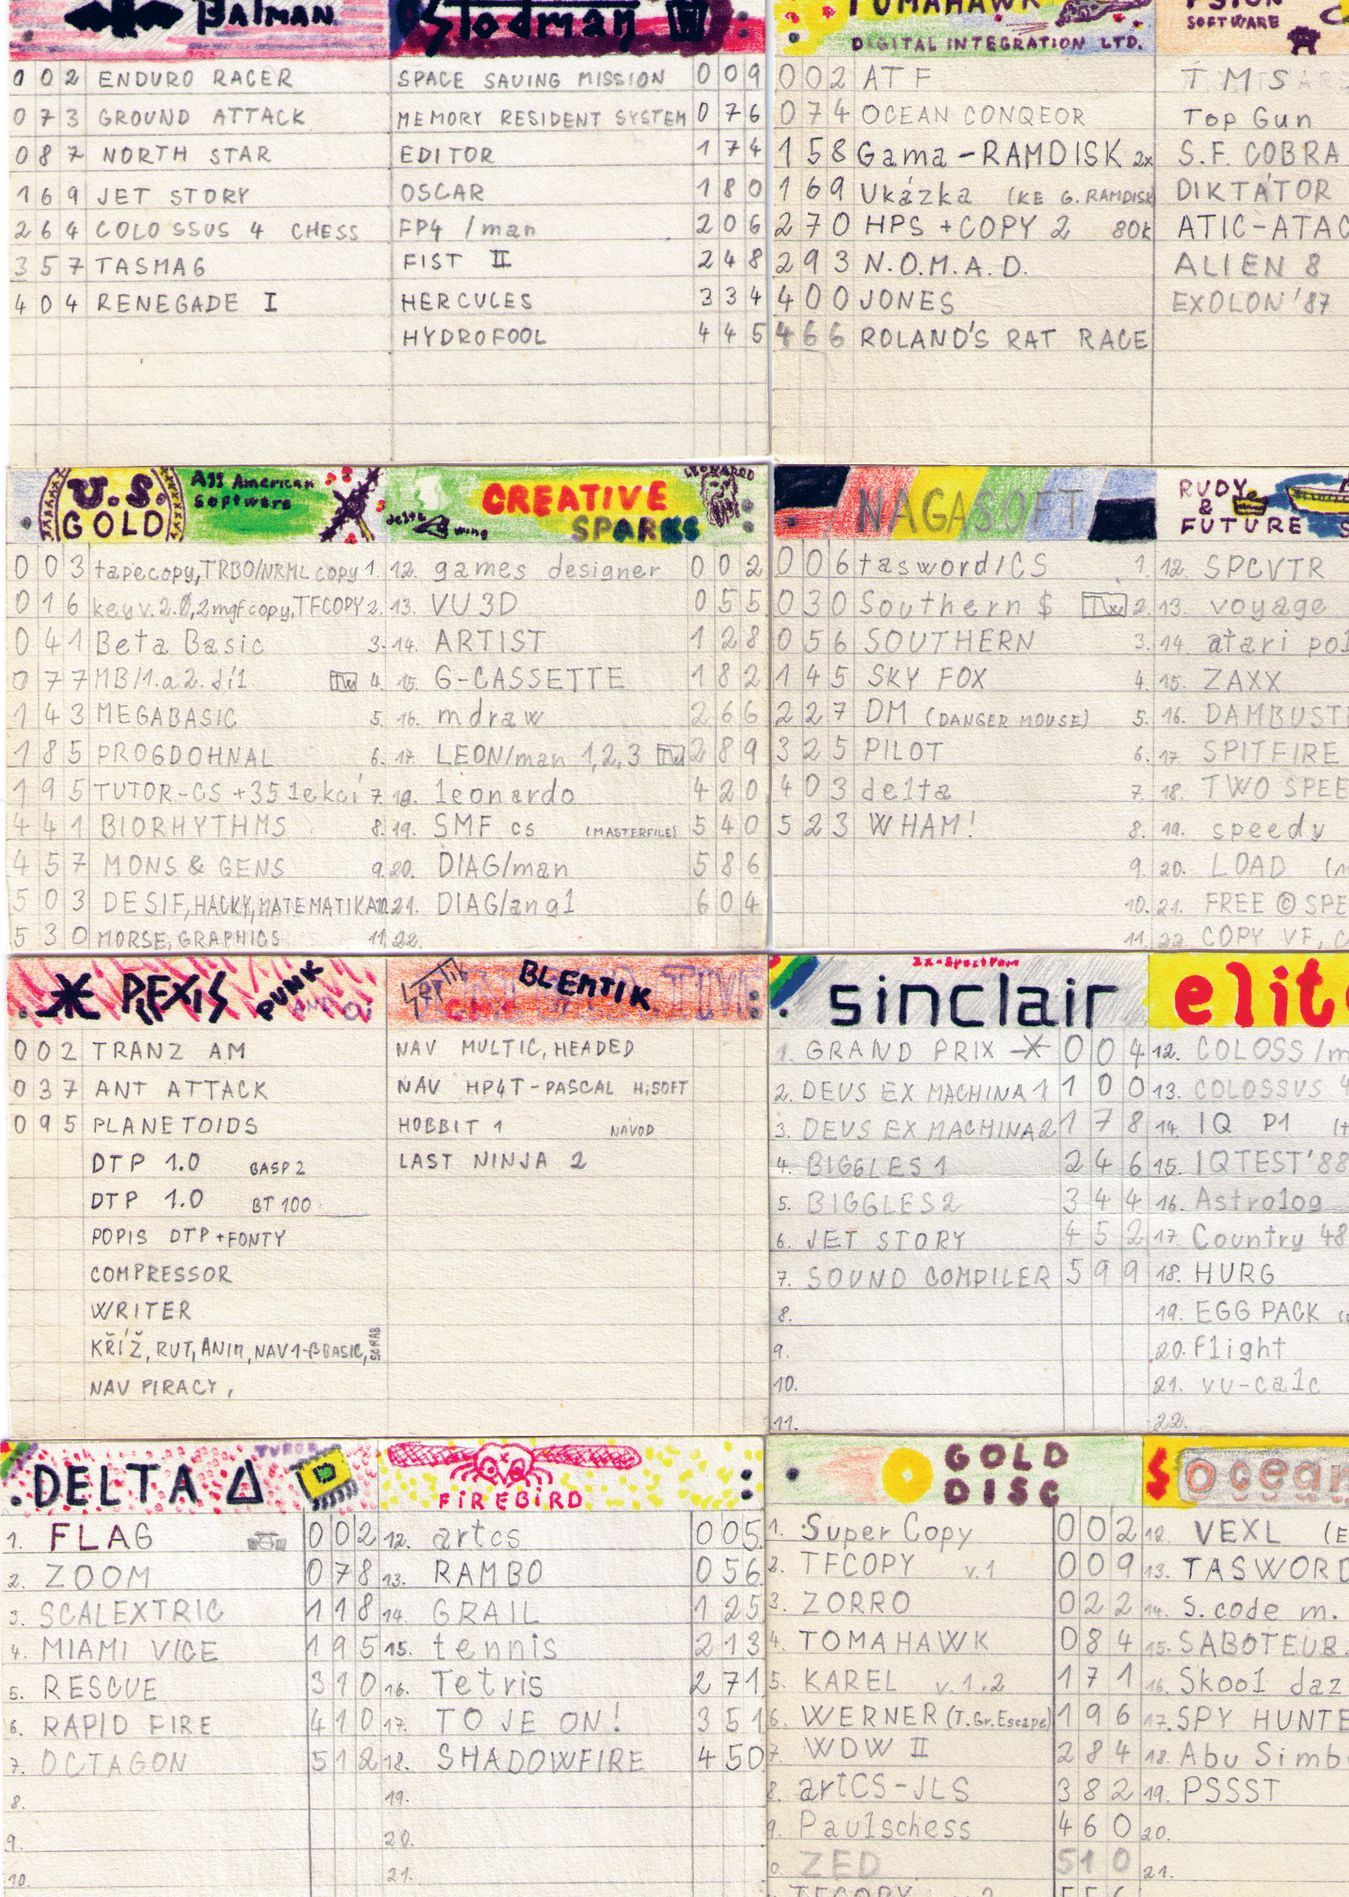 Batman
002 ENDURO RACER
073 GROUND ATTACK
087 NORTH STAR
169 JET STORY
264 COLOSSUS 4 CHESS
357 TASMAG
404 RENEGADE I
Stodman
SPACE SAVING MISSION 009
MEMORY RESIDENT SYSTEM 076
EDITOR 174
OSCAR 180
FP4 /man 206
FIST II 248
HERCULES 334
HYDROFOOL 445
TOMAHAWK
DIGITAL INTEGRATION LTD.
002 ATF
074 OCEAN CONQEOR
158 Gama-RAMDISK 2x
169 Ukázka (KE G. RAMDISK
270 HPS + COPY 2 80k
293 N.O.M.A.D.
400 JONES
466 ROLAND'S RAT RACE
PSION
SOFTWARE
T M S
Top Gun
S.F. COBRA
DIKTÁTOR
ATIC-ATAC
ALIEN 8
EXOLON '87
U.S. GOLD
All American Software
003 tapecopy, TRBO/NRML copy 1.
016 key v.2.0, 2mgfcopy, TFCOPY 2.
041 Beta Basic 3.
077 MB/1. a 2. díl Tw 4.
143 MEGABASIC 5.
185 PROGDOHNAL 6.
195 TUTOR-CS +35 lekcí 7.
441 BIORHYTHMS 8.
457 MONS & GENS 9.
503 DESIF, HACKY, MATEMATIKA 10.
530 MORSE, GRAPHICS 11.
CREATIVE SPARKS
LEONARDO
delta wing
12. games designer 002
13. VU3D 055
14. ARTIST 128
15. G-CASSETTE 182
16. mdraw 266
17. LEON/man 1,2,3 Tw 289
18. leonardo 420
19. SMF cs (MASTERFILE) 540
20. DIAG/man 586
21. DIAG/angl 604
22.
NAGASOFT
006 tasword/CS 1.
030 Southern $ Tw 2.
056 SOUTHERN 3.
145 SKY FOX 4.
227 DM (DANGER MOUSE) 5.
325 PILOT 6.
403 delta 7.
523 WHAM! 8.
9.
10.
11.
RUDY & FUTURE
12. SPCVTR
13. voyage
14. atari pol
15. ZAXX
16. DAMBUST
17. SPITFIRE
18. TWO SPEE
19. speedy
20. LOAD
21. FREE © SPE
22. COPY VF, C
PLEXIS PUNK
002 TRANZ AM
037 ANT ATTACK
095 PLANETOIDS
DTP 1.0 BASP2
DTP 1.0 BT 100
POPIS DTP + FONTY
COMPRESSOR
WRITER
KŘÍŽ, RUT, ANIM, NAV 1-βBASIC,
NAV PIRACY,
BLENTIK
NAV MULTIC, HEADED
NAV HP4T-PASCAL HiSOFT
HOBBIT 1 NÁVOD
LAST NINJA 2
ZX-Spectrum
sinclair
1. GRAND PRIX 004
2. DEUS EX MACHINA 1 100
3. DEUS EX MACHINA 2 178
4. BIGGLES 1 246
5. BIGGLES 2 344
6. JET STORY 452
7. SOUND COMPILER 599
8.
9.
10.
11.
elite
12. COLOSS/m
13. COLOSSUS 4
14. IQ P1
15. IQTEST'88
16. Astrolog
17. Country 48
18. HURG
19. EGG PACK
20. Flight
21. vu-calc
22.
DELTA
1. FLAG 002
2. ZOOM 078
3. SCALEXTRIC 118
4. MIAMI VICE 195
5. RESCUE 310
6. RAPID FIRE 410
7. OCTAGON 512
8.
9.
10.
FIREBIRD
12. artcs 005
13. RAMBO 056
14. GRAIL 125
15. tennis 213
16. Tetris 271
17. TO JE ON! 351
18. SHADOWFIRE 450
19.
20.
21.
GOLD DISC
1. Super Copy 002
2. TFCOPY v.1 009
3. ZORRO 022
4. TOMAHAWK 084
5. KAREL v.1.2 171
6. WERNER (T.Gr.Escape) 196
7. WDW II 284
8. artCS-JLS 382
9. Paulschess 460
0. ZED 510
TFCOPY
ocean
12. VEXL (E
13. TASWORD
14. S.code m.
15. SABOTEUR
16. Skool daz
17. SPY HUNTE
18. Abu Simb
19. PSSST
20.
21.